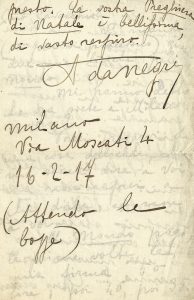 presto. La vostra Preghiera
di Natale è bellissima,
di vasto respiro.
Ada Negri
Milano
Via Moscati 4
16-2-17
(Attendo le
bozze)